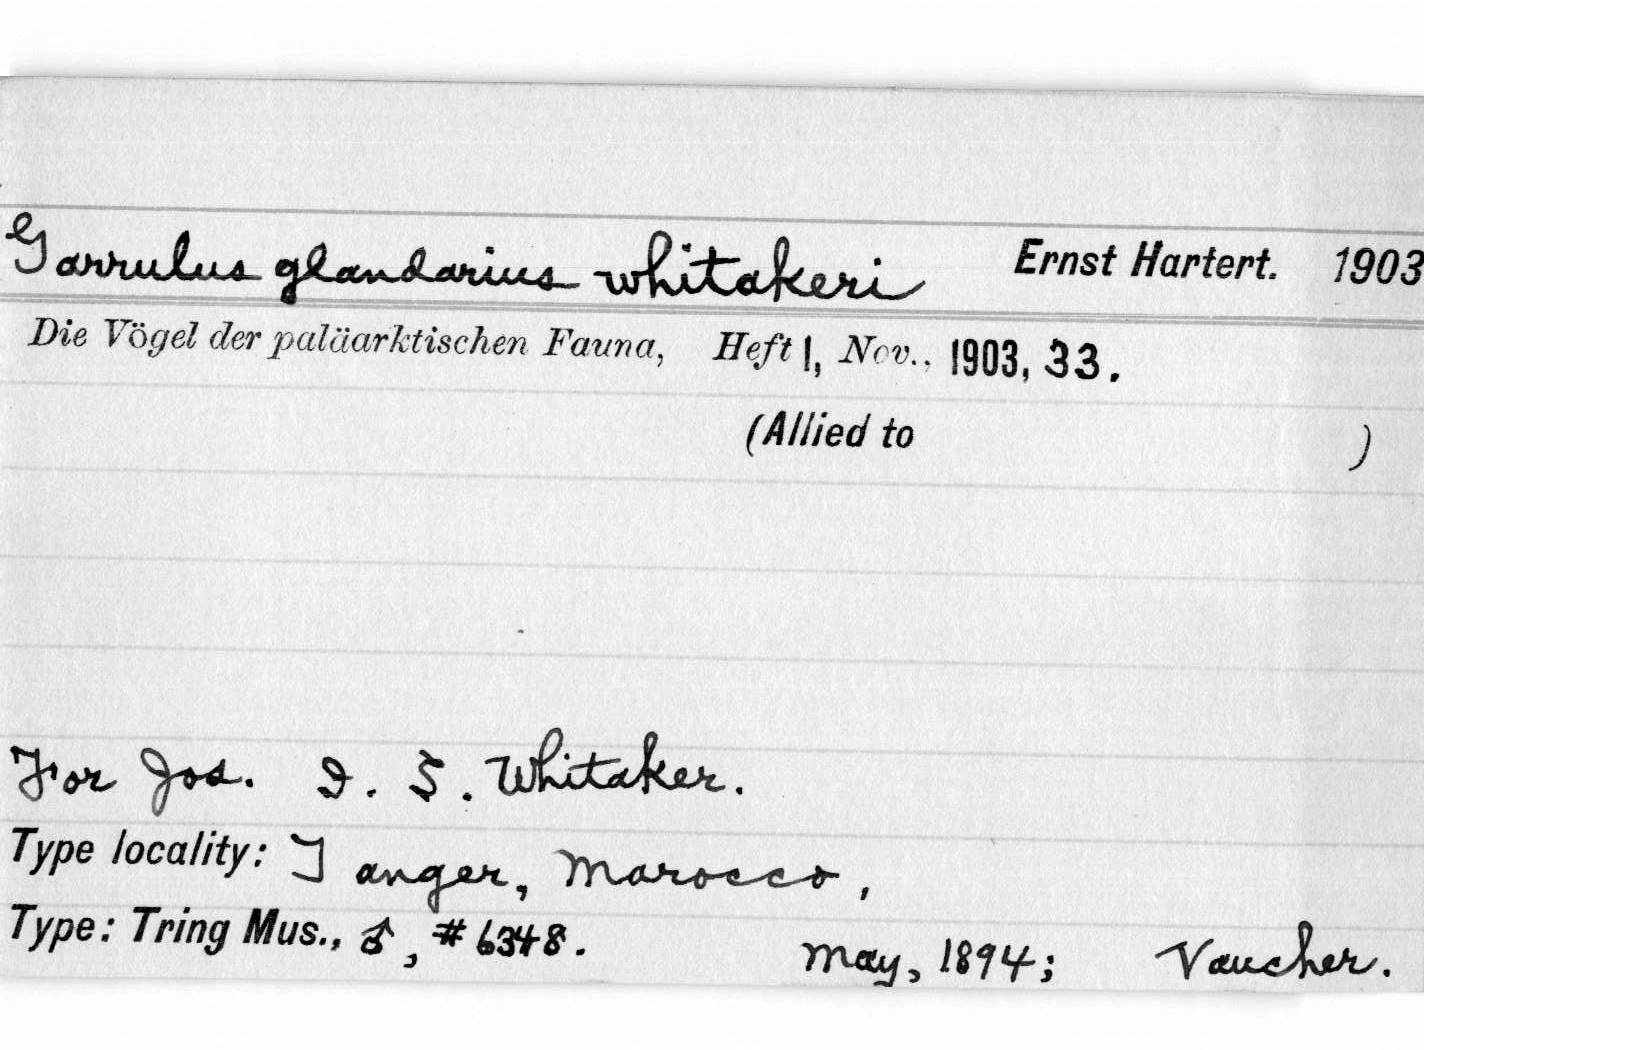 Garrulus glandarius whitakeri Ernst Hartert. 1903
Die Vögel der paläarktischen Fauna, Heft 1, Nov., 1903, 33.
(Allied to )
For Jos. I. S. Whitaker.
Type locality: Tanger, Marocco,
Type: Tring Mus., ♂, # 6348. May, 1894; Vaucher.